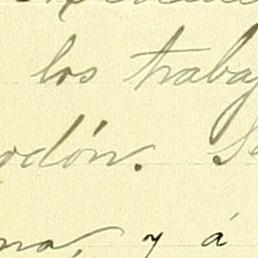 los traba
odón. S
na, y á